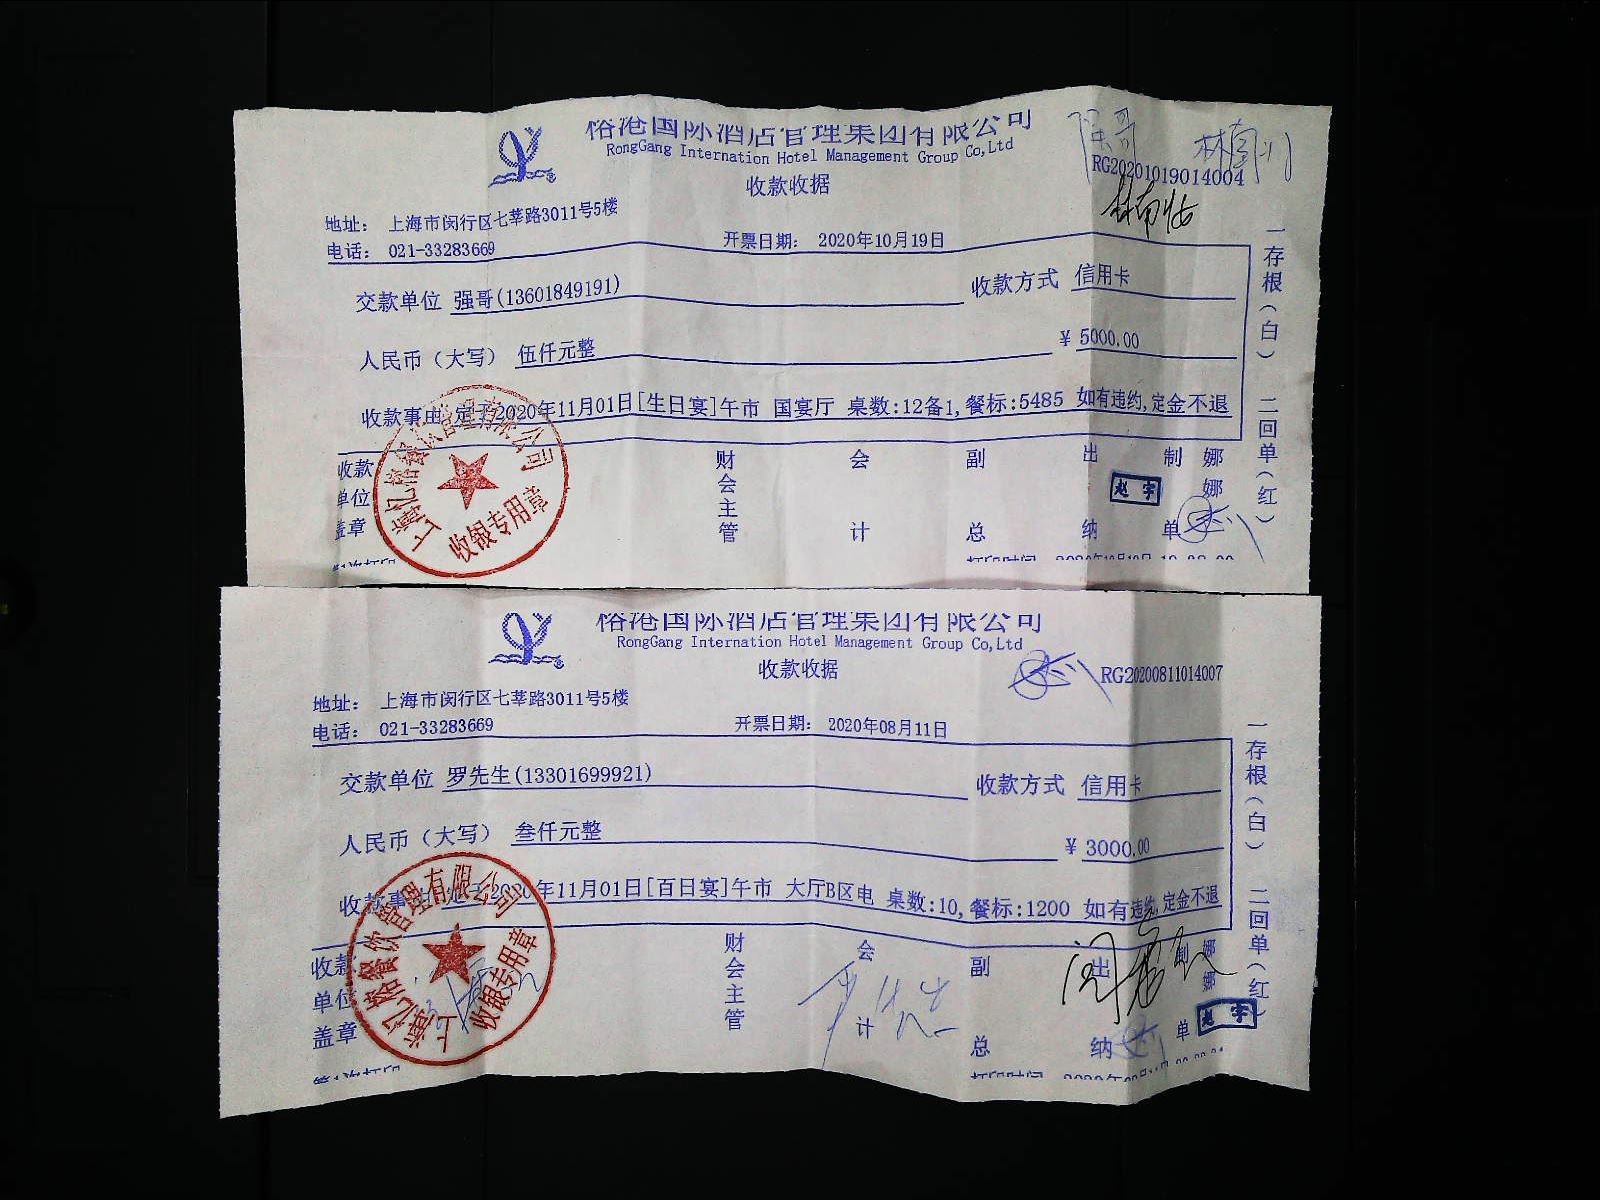 榕港国际酒店管理集团有限公司
RongGang Internation Hotel Management Group Co,Ltd
收款收据
RG20201019014004
地址： 上海市闵行区七莘路3011号5楼
电话： 021-33283669
开票日期： 2020年10月19日
交款单位 强哥(13601849191) 收款方式 信用卡
人民币（大写） 伍仟元整 ￥ 5000.00
收款事由 定于2020年11月01日[生日宴]午市 国宴厅 桌数:12备1,餐标:5485 如有违约,定金不退
收款单位盖章 财会主管 会计 副总 出纳 制单 娜娜
赵宇
一存根（白） 二回单（红）
收银专用章
榕港国际酒店管理集团有限公司
RongGang Internation Hotel Management Group Co,Ltd
收款收据
RG20200811014007
地址： 上海市闵行区七莘路3011号5楼
电话： 021-33283669
开票日期： 2020年08月11日
交款单位 罗先生(13301699921) 收款方式 信用卡
人民币（大写） 叁仟元整 ￥ 3000.00
收款事由 定于2020年11月01日[百日宴]午市 大厅B区电 桌数:10,餐标:1200 如有违约,定金不退
收款单位盖章 财会主管 会计 副总 出纳 制单 娜娜
赵宇
一存根（白） 二回单（红）
收银专用章